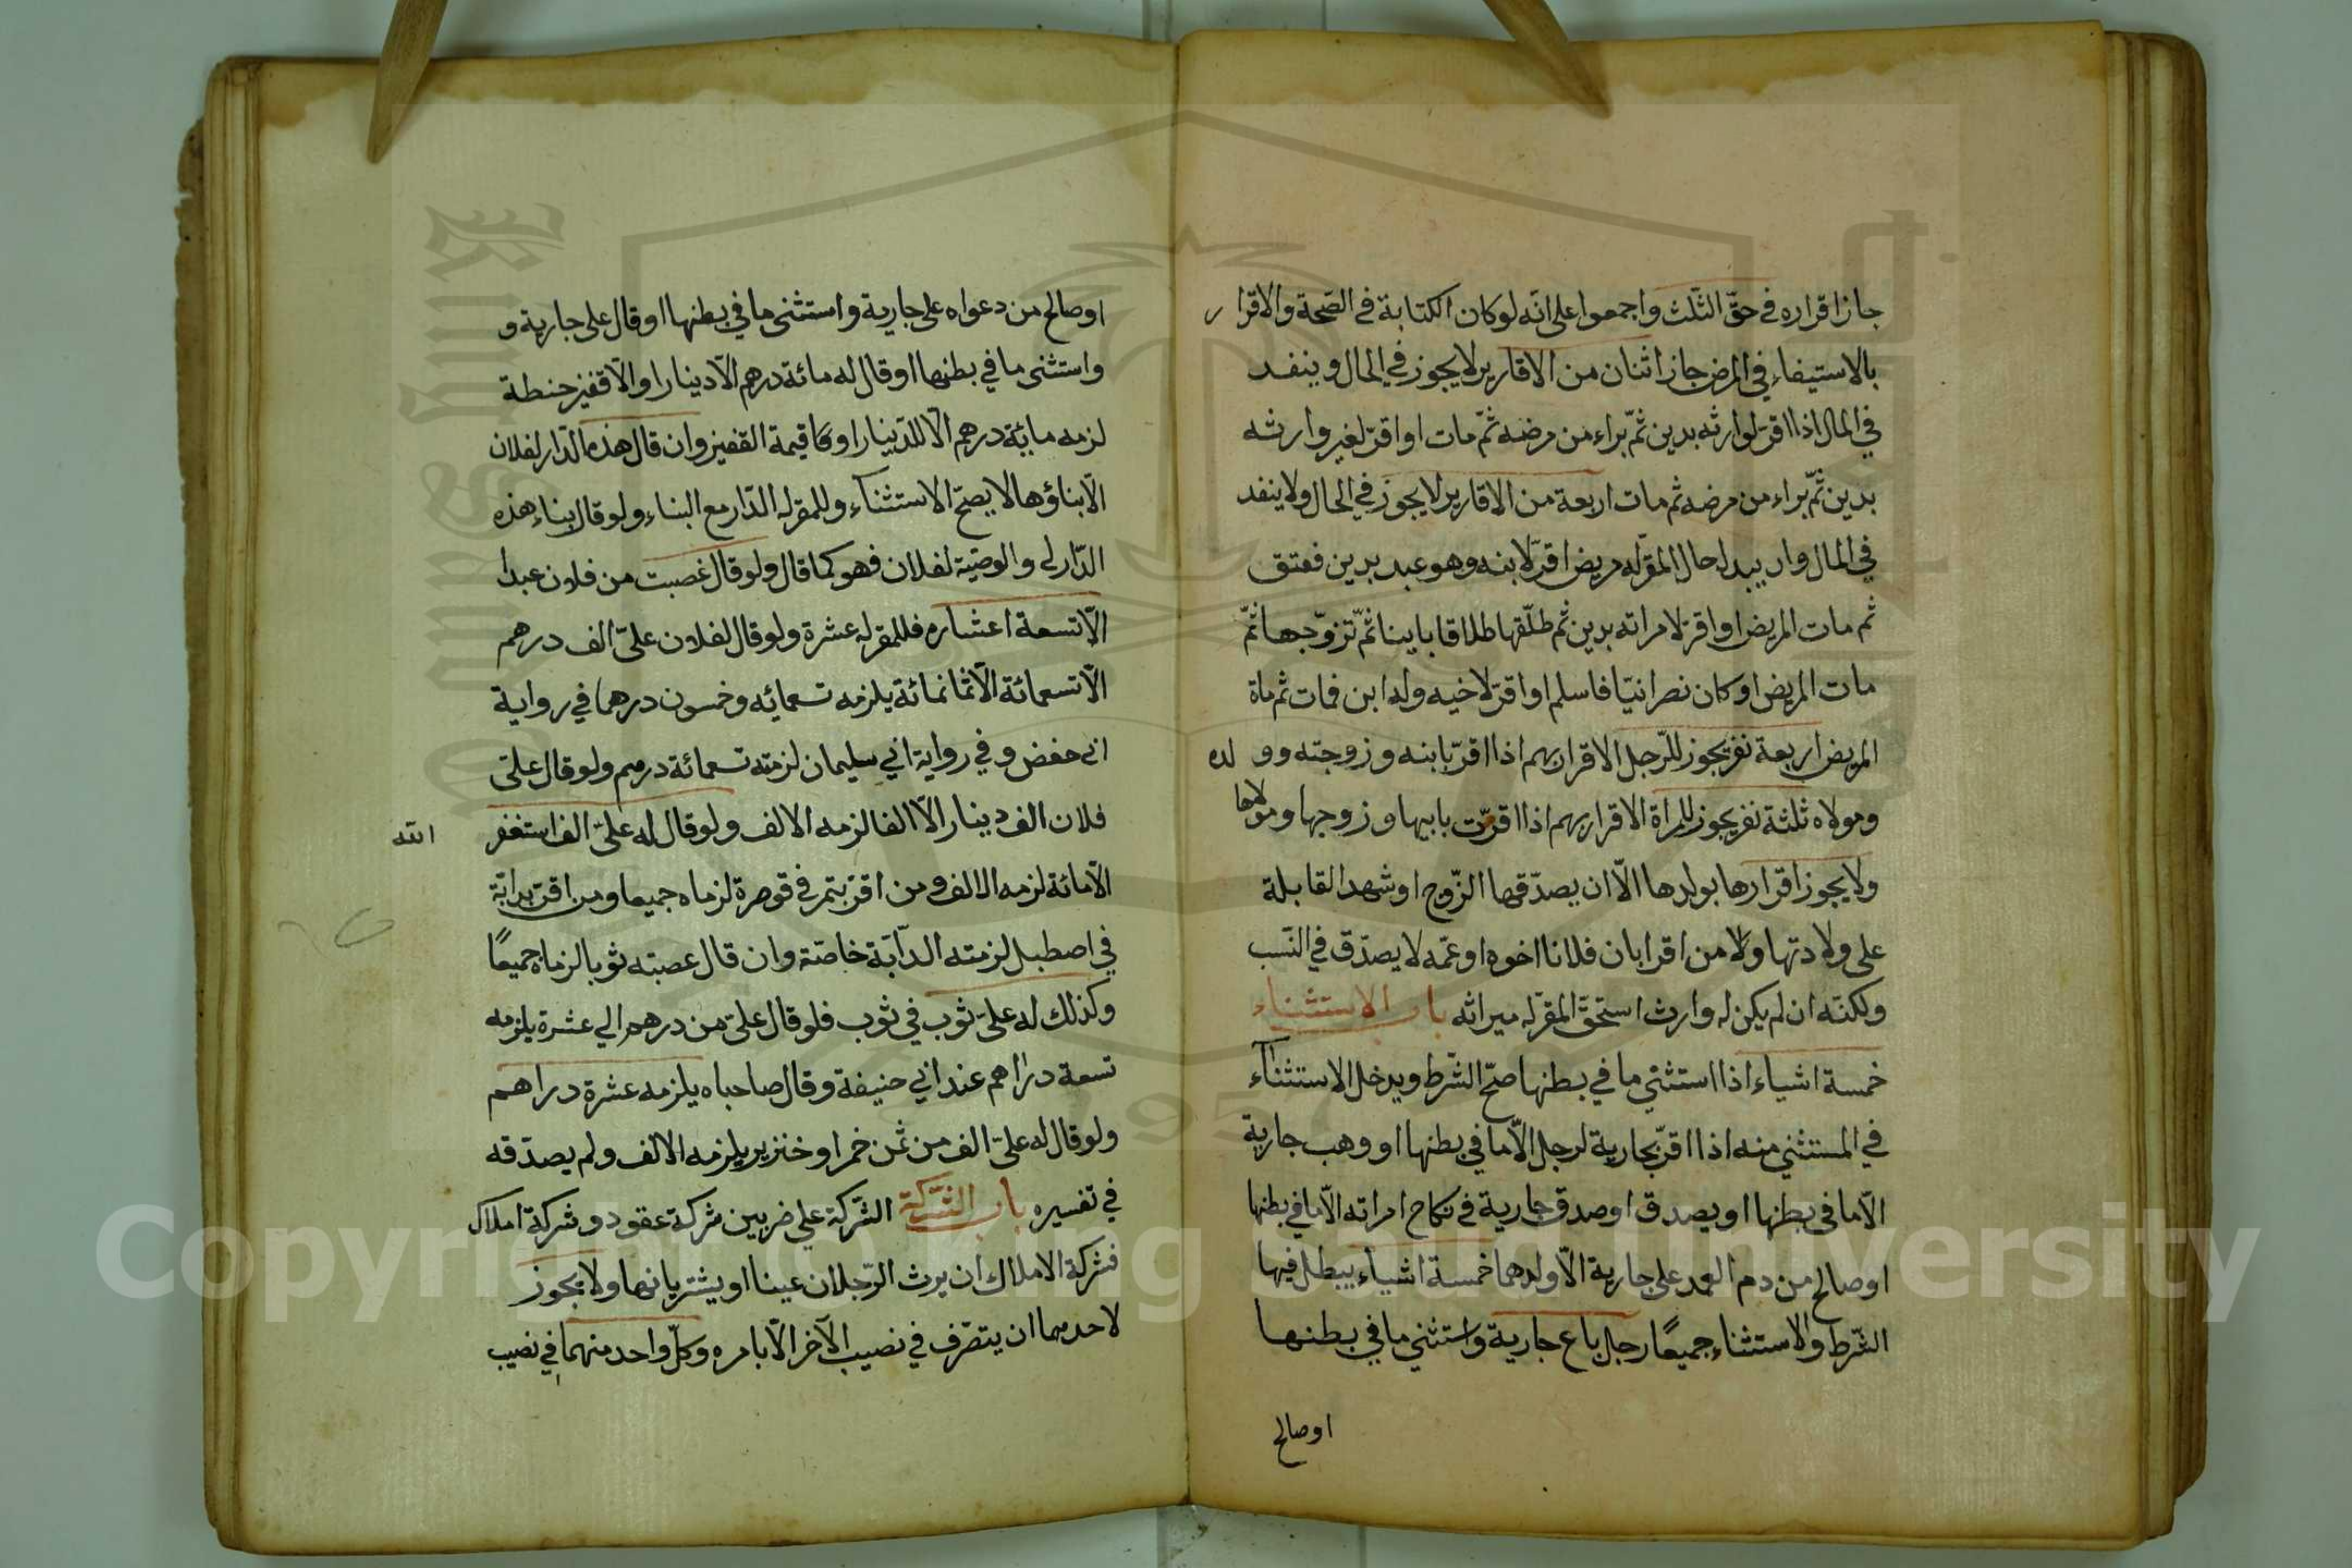 جاز اقراره في حقّ الثلث واجمعوا على انّه لو كان الكتابة في الصّحة والاقرار
بالاستيفاء في المرض جاز اثنان من الاقارير لا يجوز في الحال وينفد
في المال اذا اقرّ لوارثه بدين ثمّ براء من مرضه ثمّ مات او اقرّ لغير وارثه
بدين ثمّ براء من مرضه ثم مات اربعة من الاقارير لا يجوز في الحال ولا ينفد
في المال وان يبدل حال المقرّ له مريض اقرّ لابنه وهو عبد بدين فعتق
ثم مات المريض او اقرّ لامراته بدين ثم طلّقها طلاقا باينا ثمّ تزوّجها ثمّ
مات المريض او كان نصرانيّا فاسلم او اقرّ لاخيه وله ابن فمات ثم ماة
المريض اربعة نفر يجوز للرّجل الاقرار بهم اذا اقرّ بابنه وزوجته وو لده
ومولاه ثلثة نفر يجوز للمراة الاقرار بهم اذا اقرّت بابيها وزوجها ومولاها
ولا يجوز اقرارها بولدها الّا ان يصدّقها الزّوج او شهد القابلة
على ولادتها ولا من اقرا بان فلانا اخوه او عمّه لا يصدّق في النّسب
ولكنّه ان لم يكن له وارث استحقّ المقرّ له ميراثه باب الاستثناء
خمسة اشياء اذا استثنى ما في بطنها صحّ الشّرط ويدخل الاستثناء
في المستثنى منه اذا اقرّ بجارية لرجل الّا ما في بطنها او وهب جارية
الّا ما في بطنها او يصدق او صدق جارية في نكاح امراته الّا ما في بطنها
او صالح من دم العمد على جارية الّا ولدهما خمسة اشياء يبطل فيها
الشّرط والاستثناء جميعًا رجل باع جارية واستثنى ما في بطنها
او صالح
او صالح من دعواه على جارية واستثنى ما في بطنها او قال على جارية و
واستثنى ما في بطنها او قال له مائة درهم الّا دينارا والّا قفيز حنطة
لزمه مائة درهم الّا للدّينار او كا قيمة القفيز وان قال هذه الدّار لفلان
الّا بناؤها لا يصحّ الاستثناء وللمقرّ له الدّار مع البناء ولو قال بناء هذه
الدّار لي والوصيّة لفلان فهو كما قال ولو قال غصبت من فلان عبدا
الّا تسعة اعشاره فللمقرّ له عشرة ولو قال لفلان علىّ الف درهم
الّا تسعمائة الّا ثمانمائة يلزمه تسعمائه وخمسون درهما في رواية
ابى حفض وفي رواية ابي سليمان لزمته تسعمائة درهم ولو قال علىّ
فلان الف دينار الّا الفا لزمه الالف ولو قال له علىّ الف استغفر الله
الّا مائة لزمه الالف ومن اقرّ بتمر في قوصرة لزماه جميعا ومن اقرّ بدابّة
في اصطبل لزمته الدآبّة خاصّة وان قال غصبته ثوبا لزماه جميعًا
وكذلك له علىّ ثوب في ثوب فلو قال علىّ من درهم الي عشرة يلزمه
تسعة دراهم عند ابي حنيفة وقال صاحباه يلزمه عشرة دراهم
ولو قال له علىّ الف من ثمن خمر او خنزير يلزمه الالف ولم يصدّقه
في تفسيره باب الشّركة الشّركة علي ضربين شركة عقود وشركة املاك
فشركة الاملاك ان يرث الرّجلان عينا او يشتريانها ولا يجوز
لاحدهما ان يتصّرف في نصيب الآخر الّا بامره وكلّ واحد منهما في نصيب
Copyright © King Saud University
1957